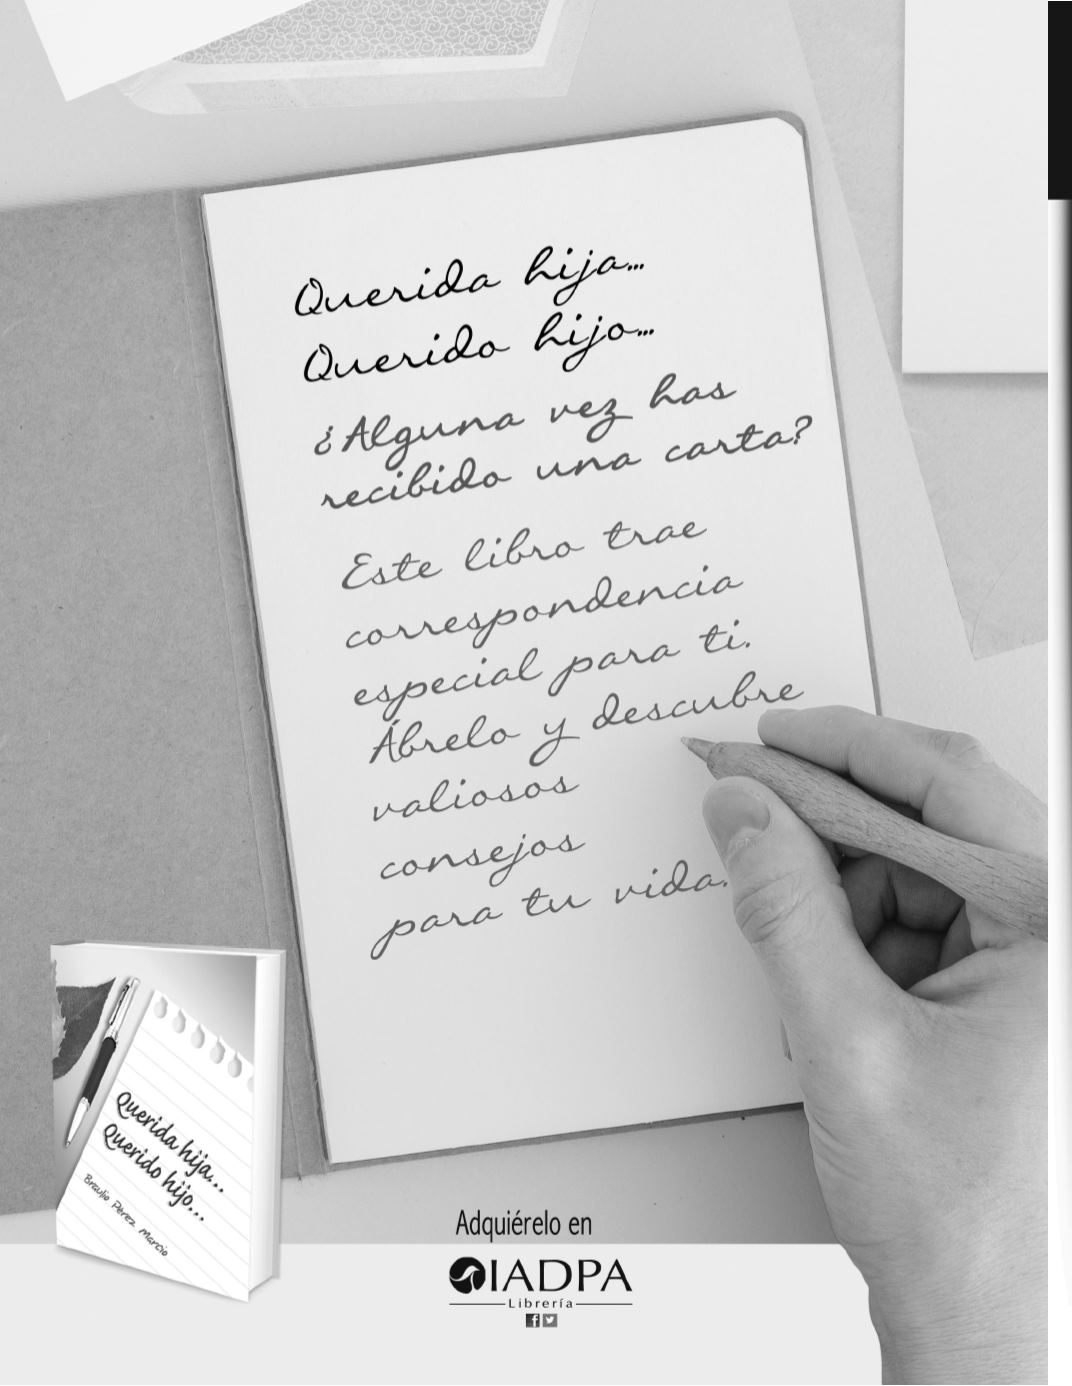 Querida hija...
Querido hijo...
¿Alguna vez has
recibido una carta?
Este libro trae
correspondencia
especial para ti.
Ábrelo y descubre
valiosos
consejos
para tu vida.
Querida hija...
Querido hijo...
Braulio Pérez Marcio
Adquiérelo en
IADPA
Librería